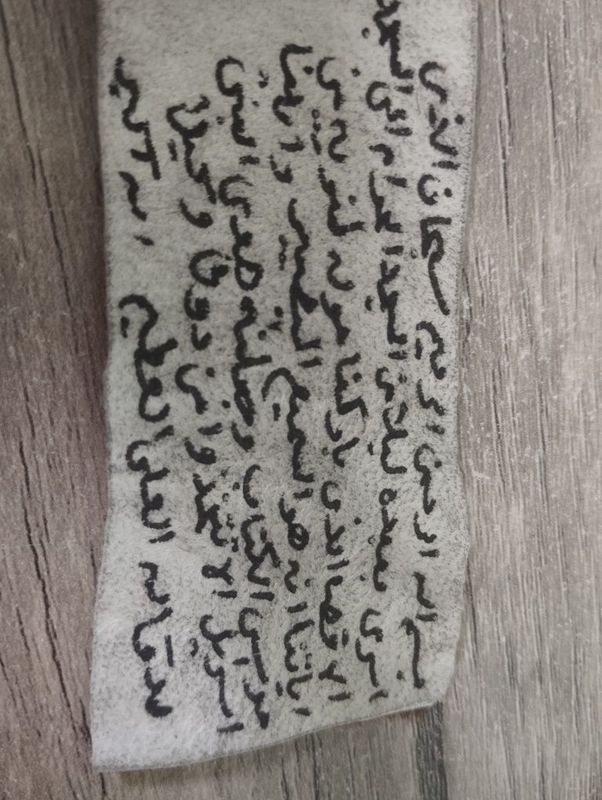 بسم الله الرحمن الرحيم سبحان الذي
اسرى بعبده ليلا من المسجد الحرام الى المسجد
الاقصا الذي باركنا حوله لنريه من
اياتنا انه هو السميع البصير و اتينا
موسى الكتاب وجعلنه هدى لبني
اسرايل الا تتخذوا من دوني وكيلا
صدق الله العلي العظيم